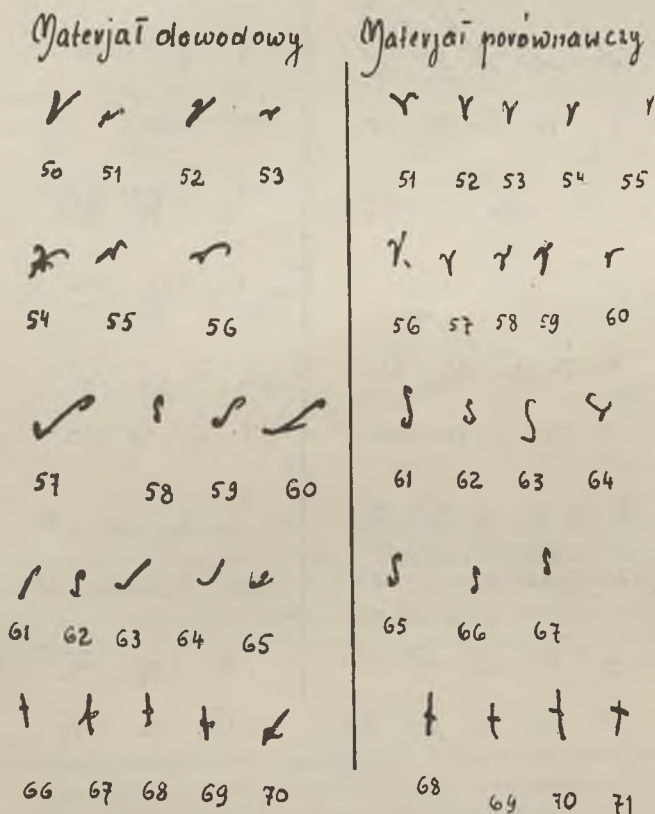 Materjał dowodowy
50 51 52 53
54 55 56
57 58 59 60
61 62 63 64 65
66 67 68 69 70
Materjał porównawczy
51 52 53 54 55
56 57 58 59 60
61 62 63 64
65 66 67
68 69 70 71